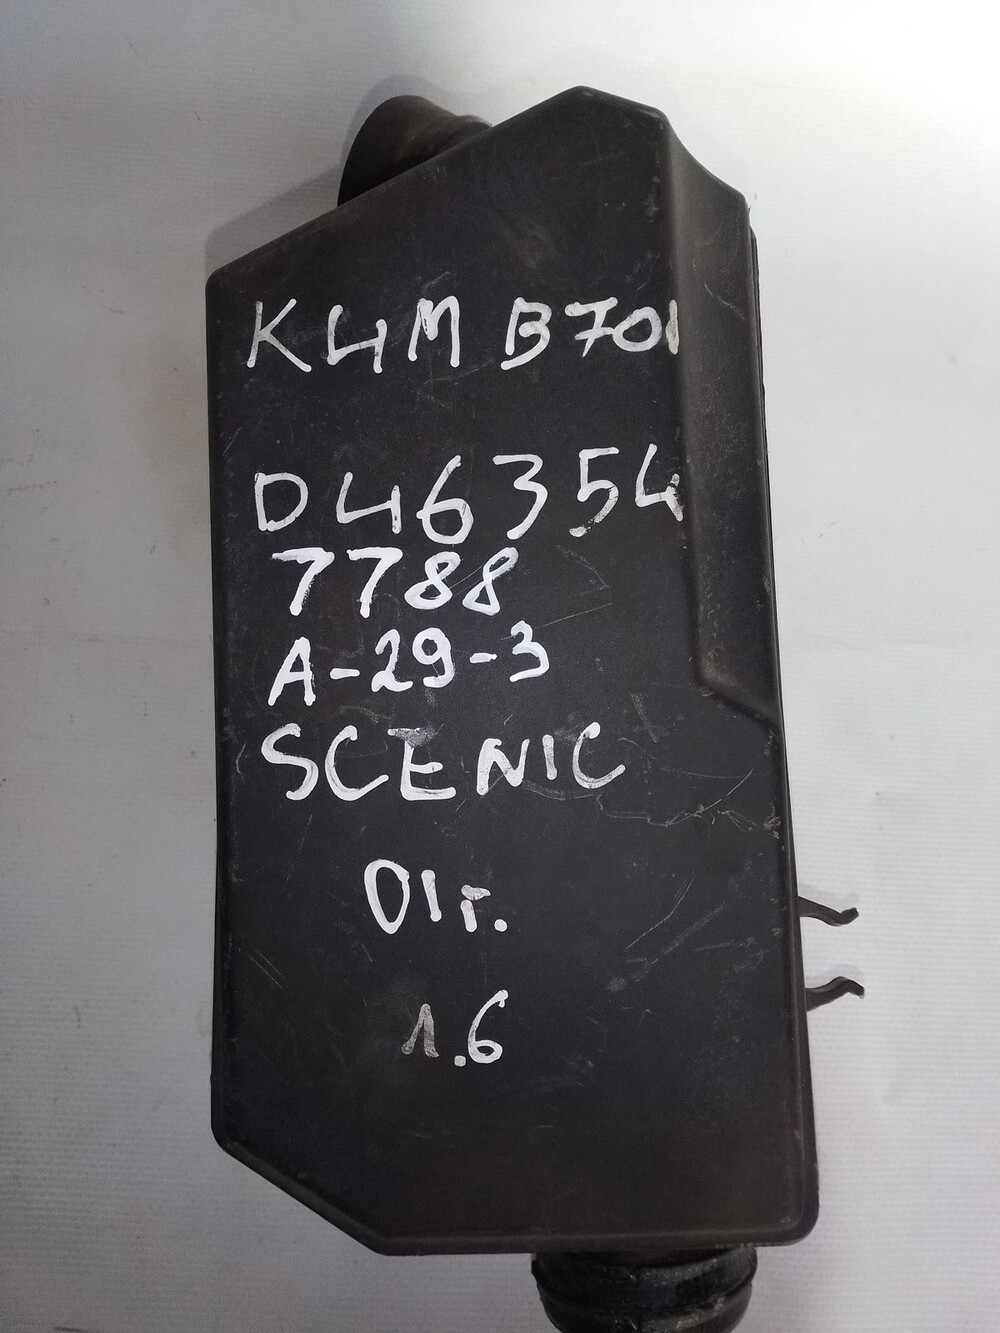 K4M B701
D46354
7788
A-29-3
SCENIC
01г.
1.6